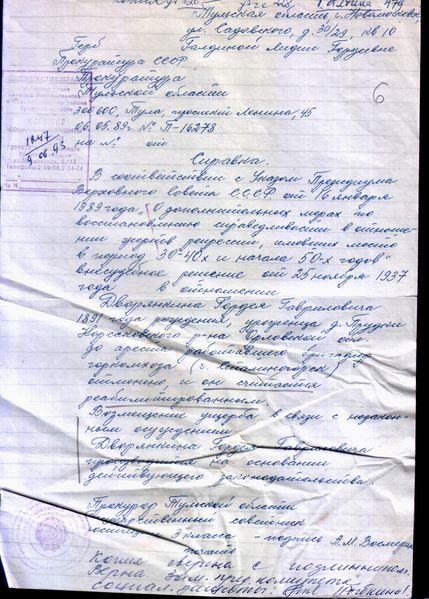 Тульская область г. Новомосковск
ул. Садовского, д. 30/29, кв 10
Герб Галдиной Лидии Гордеевне
Прокуратура СССР
Прокуратура
Тульской области
300600, Тула, проспект Ленина, 45
06.05.89г. № П-16278
на № от
6
1247
9.06.93
Справка.
В соответствии с Указом Президиума
Верховного Совета СССР от 16 января
1989 года „О дополнительных мерах по
восстановлению справедливости в отноше-
нии жертв репрессий, имевших место
в период 30-40х и начала 50-х годов"
внесудебное решение от 25 ноября 1937
года в отношении
Дворянкина Гордея Гавриловича
1891 года рождения, уроженца д. Прудки
Корсаковского р-на Орловской обл.
до ареста работавшего бригадир
горкомхоза (г. Сталиногорск)
отменено, и он считается
реабилитированным.
Возмещение ущерба в связи с незакон-
ным осуждением
Дворянкина Гордея Гавриловича
производится на основании
действующего законодательства.
Прокурор Тульской области
Государственный советник
юстиции 3 класса - подпись А.М.
печать
Копия сверена с подлинником.
Верна
социал. защиты: